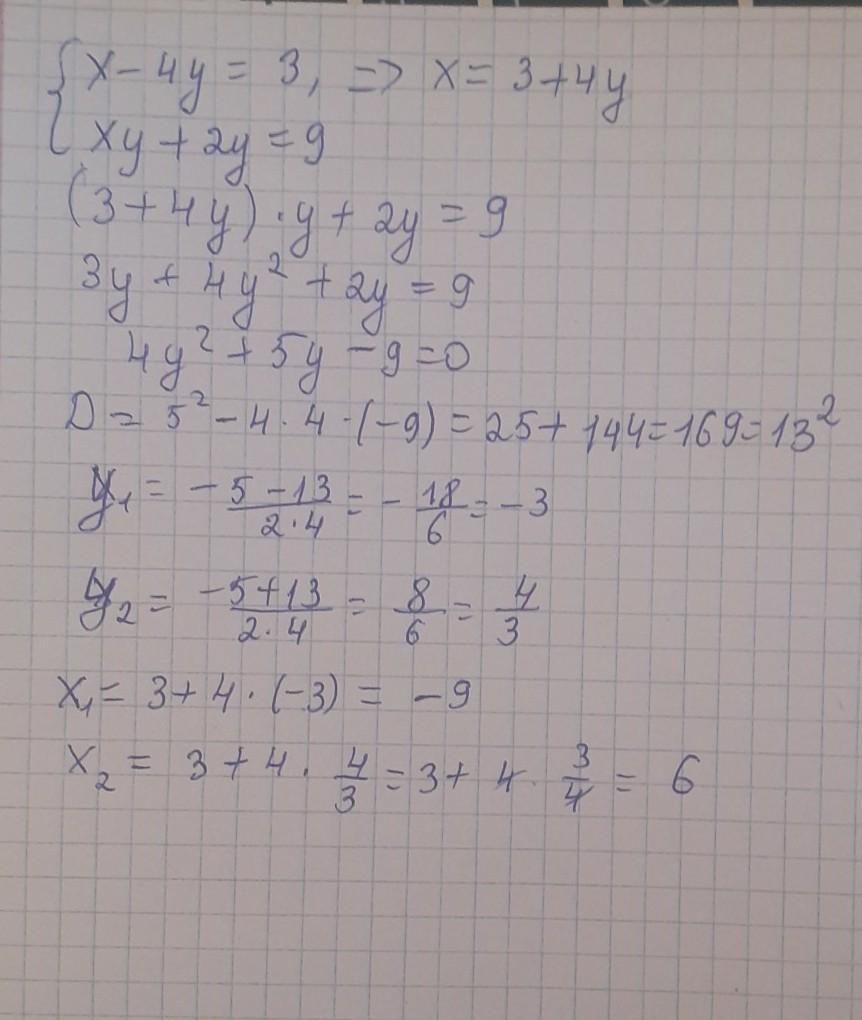 { x - 4y = 3, => x = 3 + 4y
xy + 2y = 9
(3 + 4y) · y + 2y = 9
3y + 4y² + 2y = 9
4y² + 5y - 9 = 0
D = 5² - 4 · 4 · (-9) = 25 + 144 = 169 = 13²
y₁ = (-5 - 13)/(2 · 4) = - 18/6 = -3
y₂ = (-5 + 13)/(2 · 4) = 8/6 = 4/3
x₁ = 3 + 4 · (-3) = -9
x₂ = 3 + 4 · 4/3 = 3 + 4 · 3/4 = 6